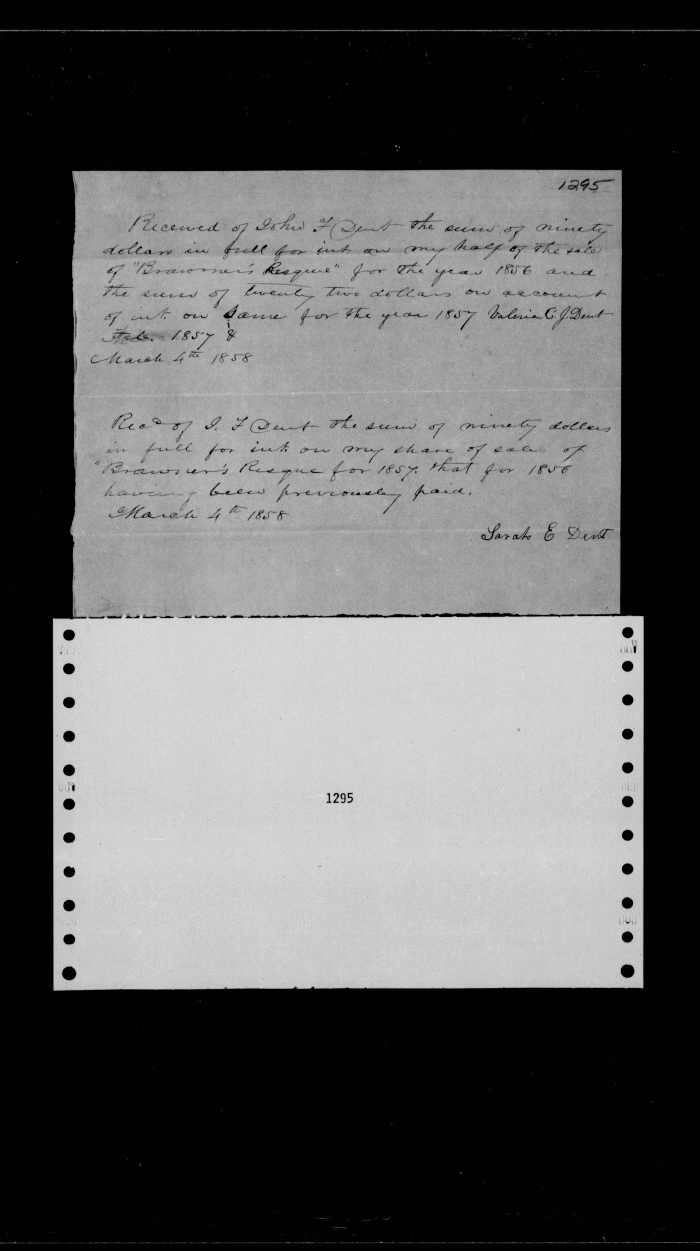 1295
Received of John F Dent the sum of ninety
dollars in full for int on my half of the sale
of "Brawner's Risque" for the year 1856 and
the sum of twenty two dollars on account
of int on Same for the year 1857 Valeria C. J. Dent
Feb. 1857 &
March 4th 1858
Recd of J. F Dent the sum of ninety dollars
in full for int on my share of sale of
"Brawner's Risque for 1857. that for 1856
having been previously paid.
March 4th 1858
Sarah E Dent
1295